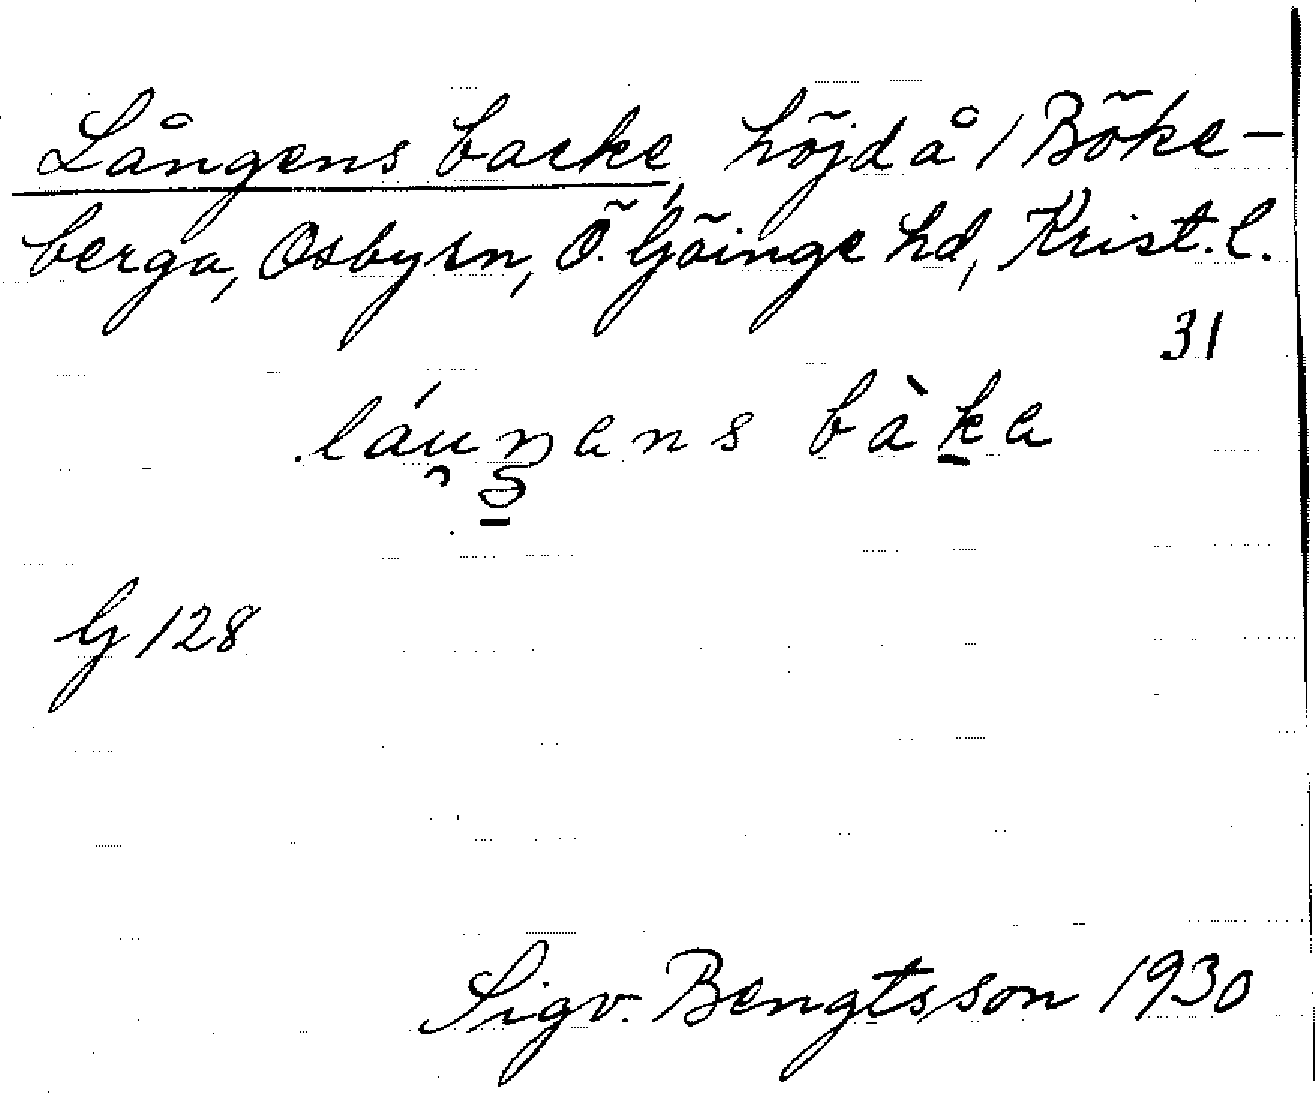 Långens backe, höjd å 1 Böke-
berga, Osby sn, Ö. Göinge hd, Krist. l.
31
láu̯ŋans bàka
G 128
Sigv. Bengtsson 1930